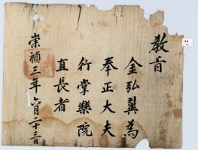 敎旨
金弘翼爲
奉正大夫
行掌樂院
直長者
崇禎三年八月二十三日